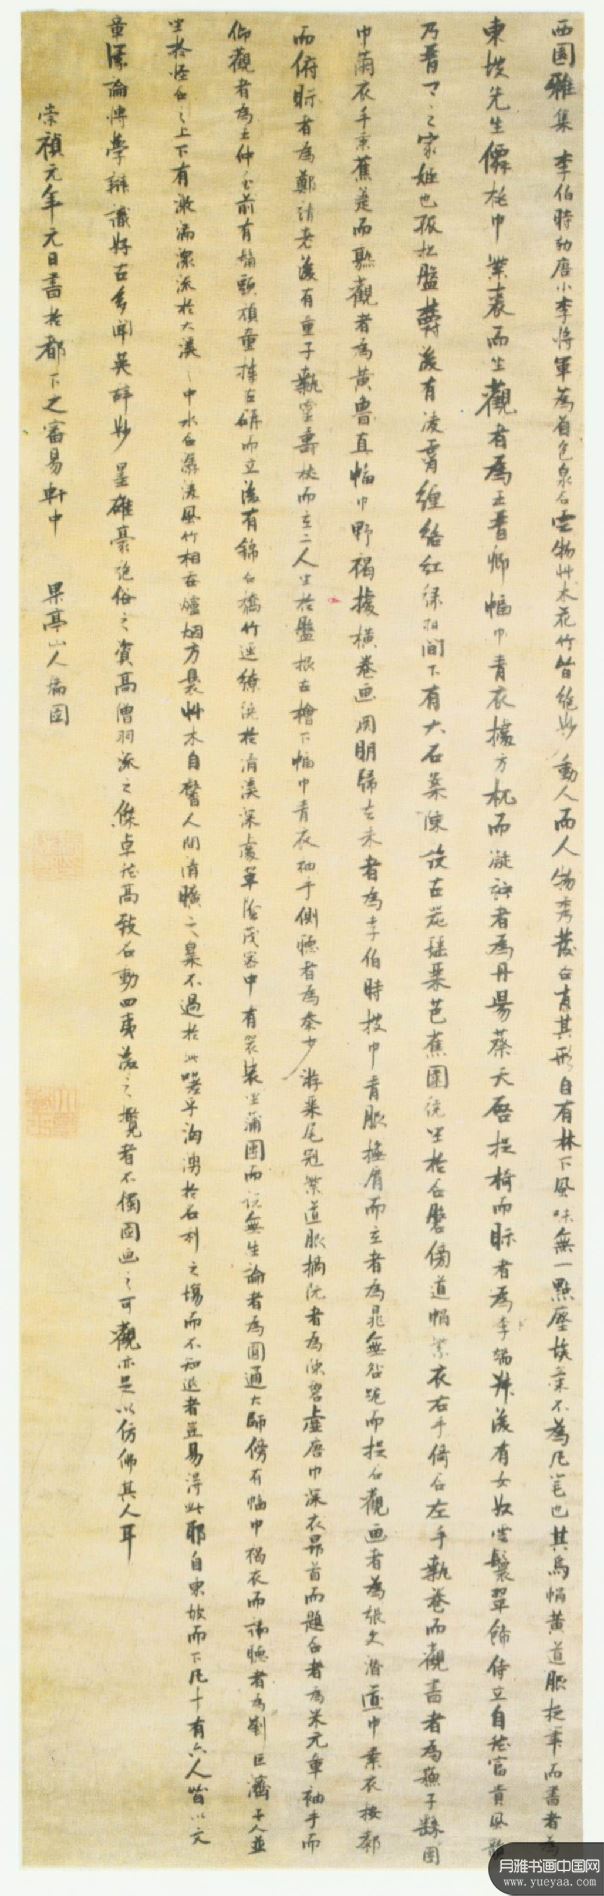 西園雅集 李伯時効唐小李將軍為着色泉石雲物艸木花竹皆絕妙動人而人物秀發各肖其形自有林下風味無一點塵埃氣不為凡筆也其烏帽黃道服捉筆而書者為
東坡先生僊桃巾紫裘而坐觀者為王晉卿幅巾青衣據方杌而凝竚者為丹陽蔡天啓捉椅而眎者為李端叔後有女奴雲鬟翠飾侍立自然富貴風韻
乃晉卿之家姬也孤松盤鬱後有凌霄纏絡紅綠相間下有大石案陳設古器瑤琴芭蕉圍繞坐於石磐傍道帽紫衣右手倚石左手執卷而觀書者為蘇子繇團
巾蠒衣手秉蕉箑而熟觀者為黃魯直幅巾野褐據橫卷画淵明歸去來者為李伯時披巾青服撫肩而立者為晁無咎跪而捉石觀画者為張文潛道巾素衣按膝
而俯眎者為鄭靖老後有童子執靈壽杖而立二人坐於盤根古檜下幅巾青衣袖手側聽者為秦少游琴尾冠紫道服摘阮者為陳碧虛唐巾深衣昂首而題石者為米元章袖手而
仰觀者為王仲至前有鬅頭頑童捧古硯而立後有錦石橋竹逕繚繞於清溪深處翠陰茂密中有袈裟坐蒲團而說無生論者為圓通大師傍有幅巾褐衣而諦聽者為劉巨濟二人並
坐於怪石之上下有激湍潨流於大溪之中水石潺湲風竹相吞爐烟方裊艸木自馨人間清曠之樂不過於此嗟乎洶湧於名利之場而不知退者豈易得此耶自東坡而下凡十有六人皆以文
章議論博學辯識好古多聞英辭妙墨雄豪絕俗之資高僧羽流之傑卓然高致名動四夷後之攬者不獨圖画之可觀亦足以仿佛其人耳
崇禎元年元日書於都下之審易軒中 果亭山人瑞圖
月雅书画中国网
www.yueyaa.com